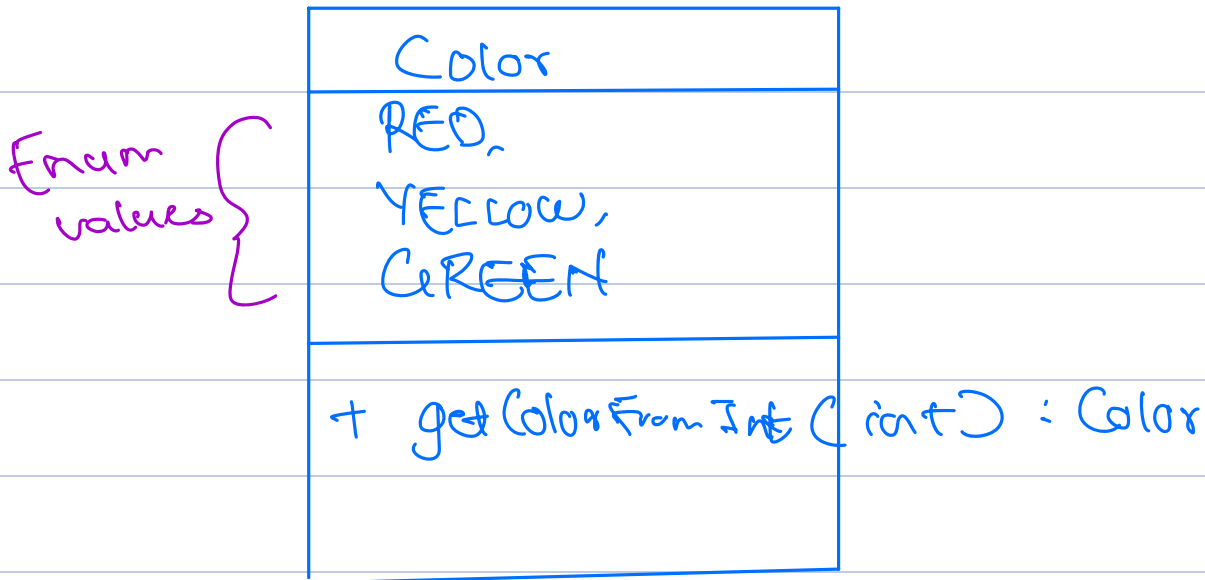 Color
Enum
values
RED,
YELLOW,
GREEN
+ getColorFromInt (int) : Color